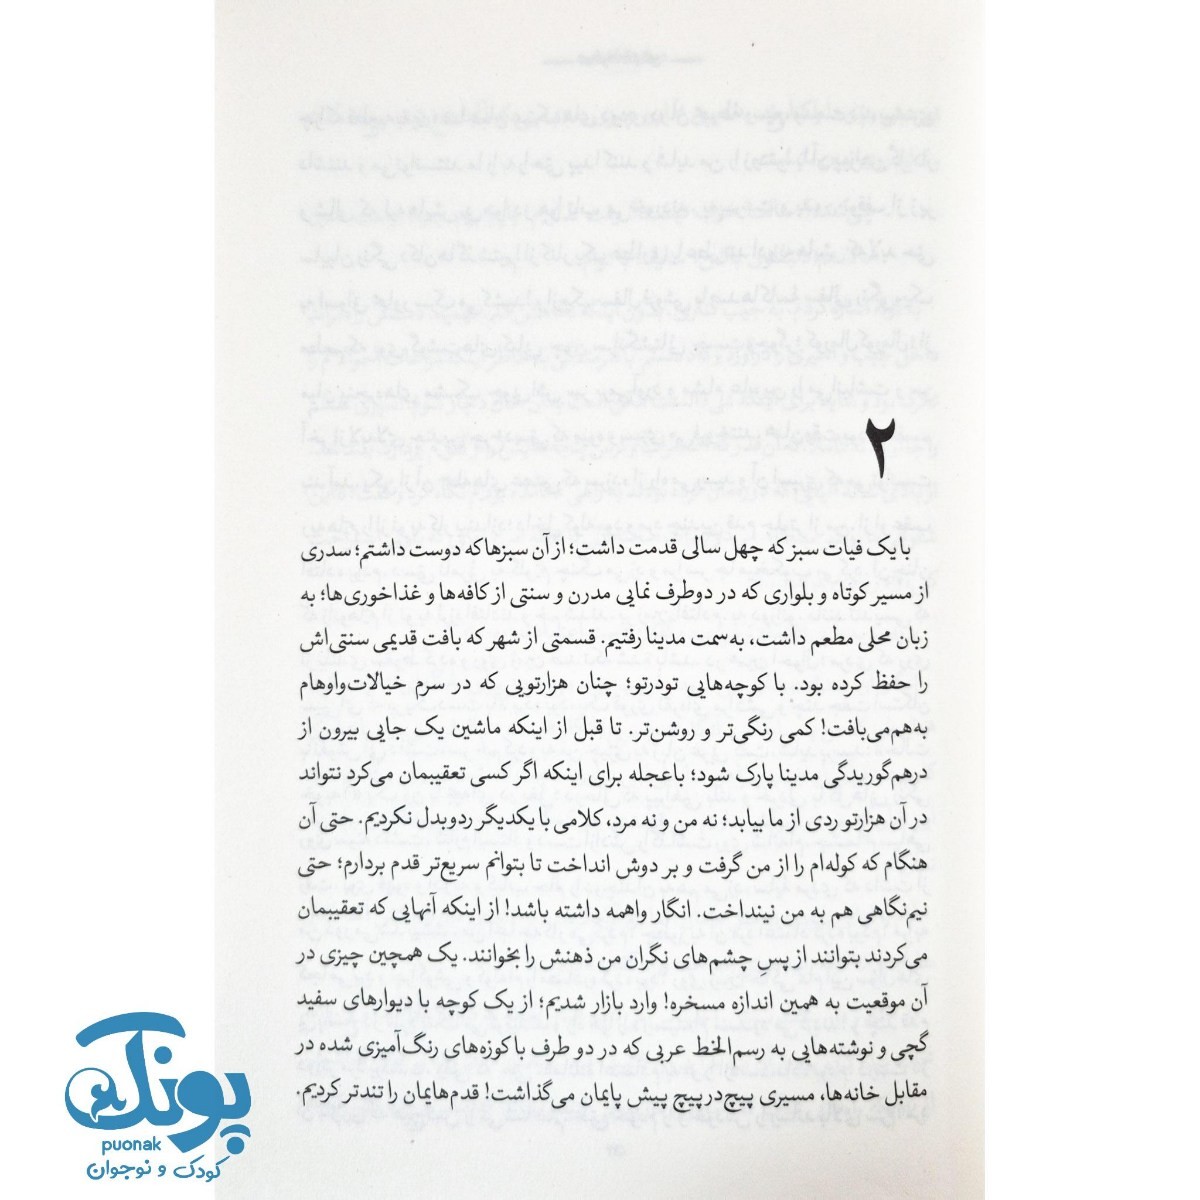 ۲
با یک فیات سبز که چهل سالی قدمت داشت؛ از آن سبزها که دوست داشتم؛ سدری
از مسیر کوتاه و بلواری که در دوطرف نمایی مدرن و سنتی از کافه‌ها و غذاخوری‌ها؛ به
زبان محلی مطعم داشت، به‌سمت مدینا رفتیم. قسمتی از شهر که بافت قدیمی سنتی‌اش
را حفظ کرده بود. با کوچه‌هایی تودرتو؛ چنان هزارتویی که در سرم خیالات‌واوهام
به‌هم‌می‌بافت! کمی رنگی‌تر و روشن‌تر. تا قبل از اینکه ماشین یک جایی بیرون از
درهم‌گوریدگی مدینا پارک شود؛ باعجله برای اینکه اگر کسی تعقیبمان می‌کرد نتواند
در آن هزارتو ردی از ما بیابد؛ نه من و نه مرد، کلامی با یکدیگر ردوبدل نکردیم. حتی آن
هنگام که کوله‌ام را از من گرفت و بر دوش انداخت تا بتوانم سریع‌تر قدم بردارم؛ حتی
نیم‌نگاهی هم به من نینداخت. انگار واهمه داشته باشد! از اینکه آنهایی که تعقیبمان
می‌کردند بتوانند از پسِ چشم‌های نگران من ذهنش را بخوانند. یک همچین چیزی در
آن موقعیت به همین اندازه مسخره! وارد بازار شدیم؛ از یک کوچه با دیوارهای سفید
گچی و نوشته‌هایی به رسم‌الخط عربی که در دو طرف با کوزه‌های رنگ‌آمیزی شده در
مقابل خانه‌ها، مسیری پیچ‌درپیچ پیش پایمان می‌گذاشت! قدم‌هایمان را تندتر کردیم.
پونک
puonak
کودک و نوجوان